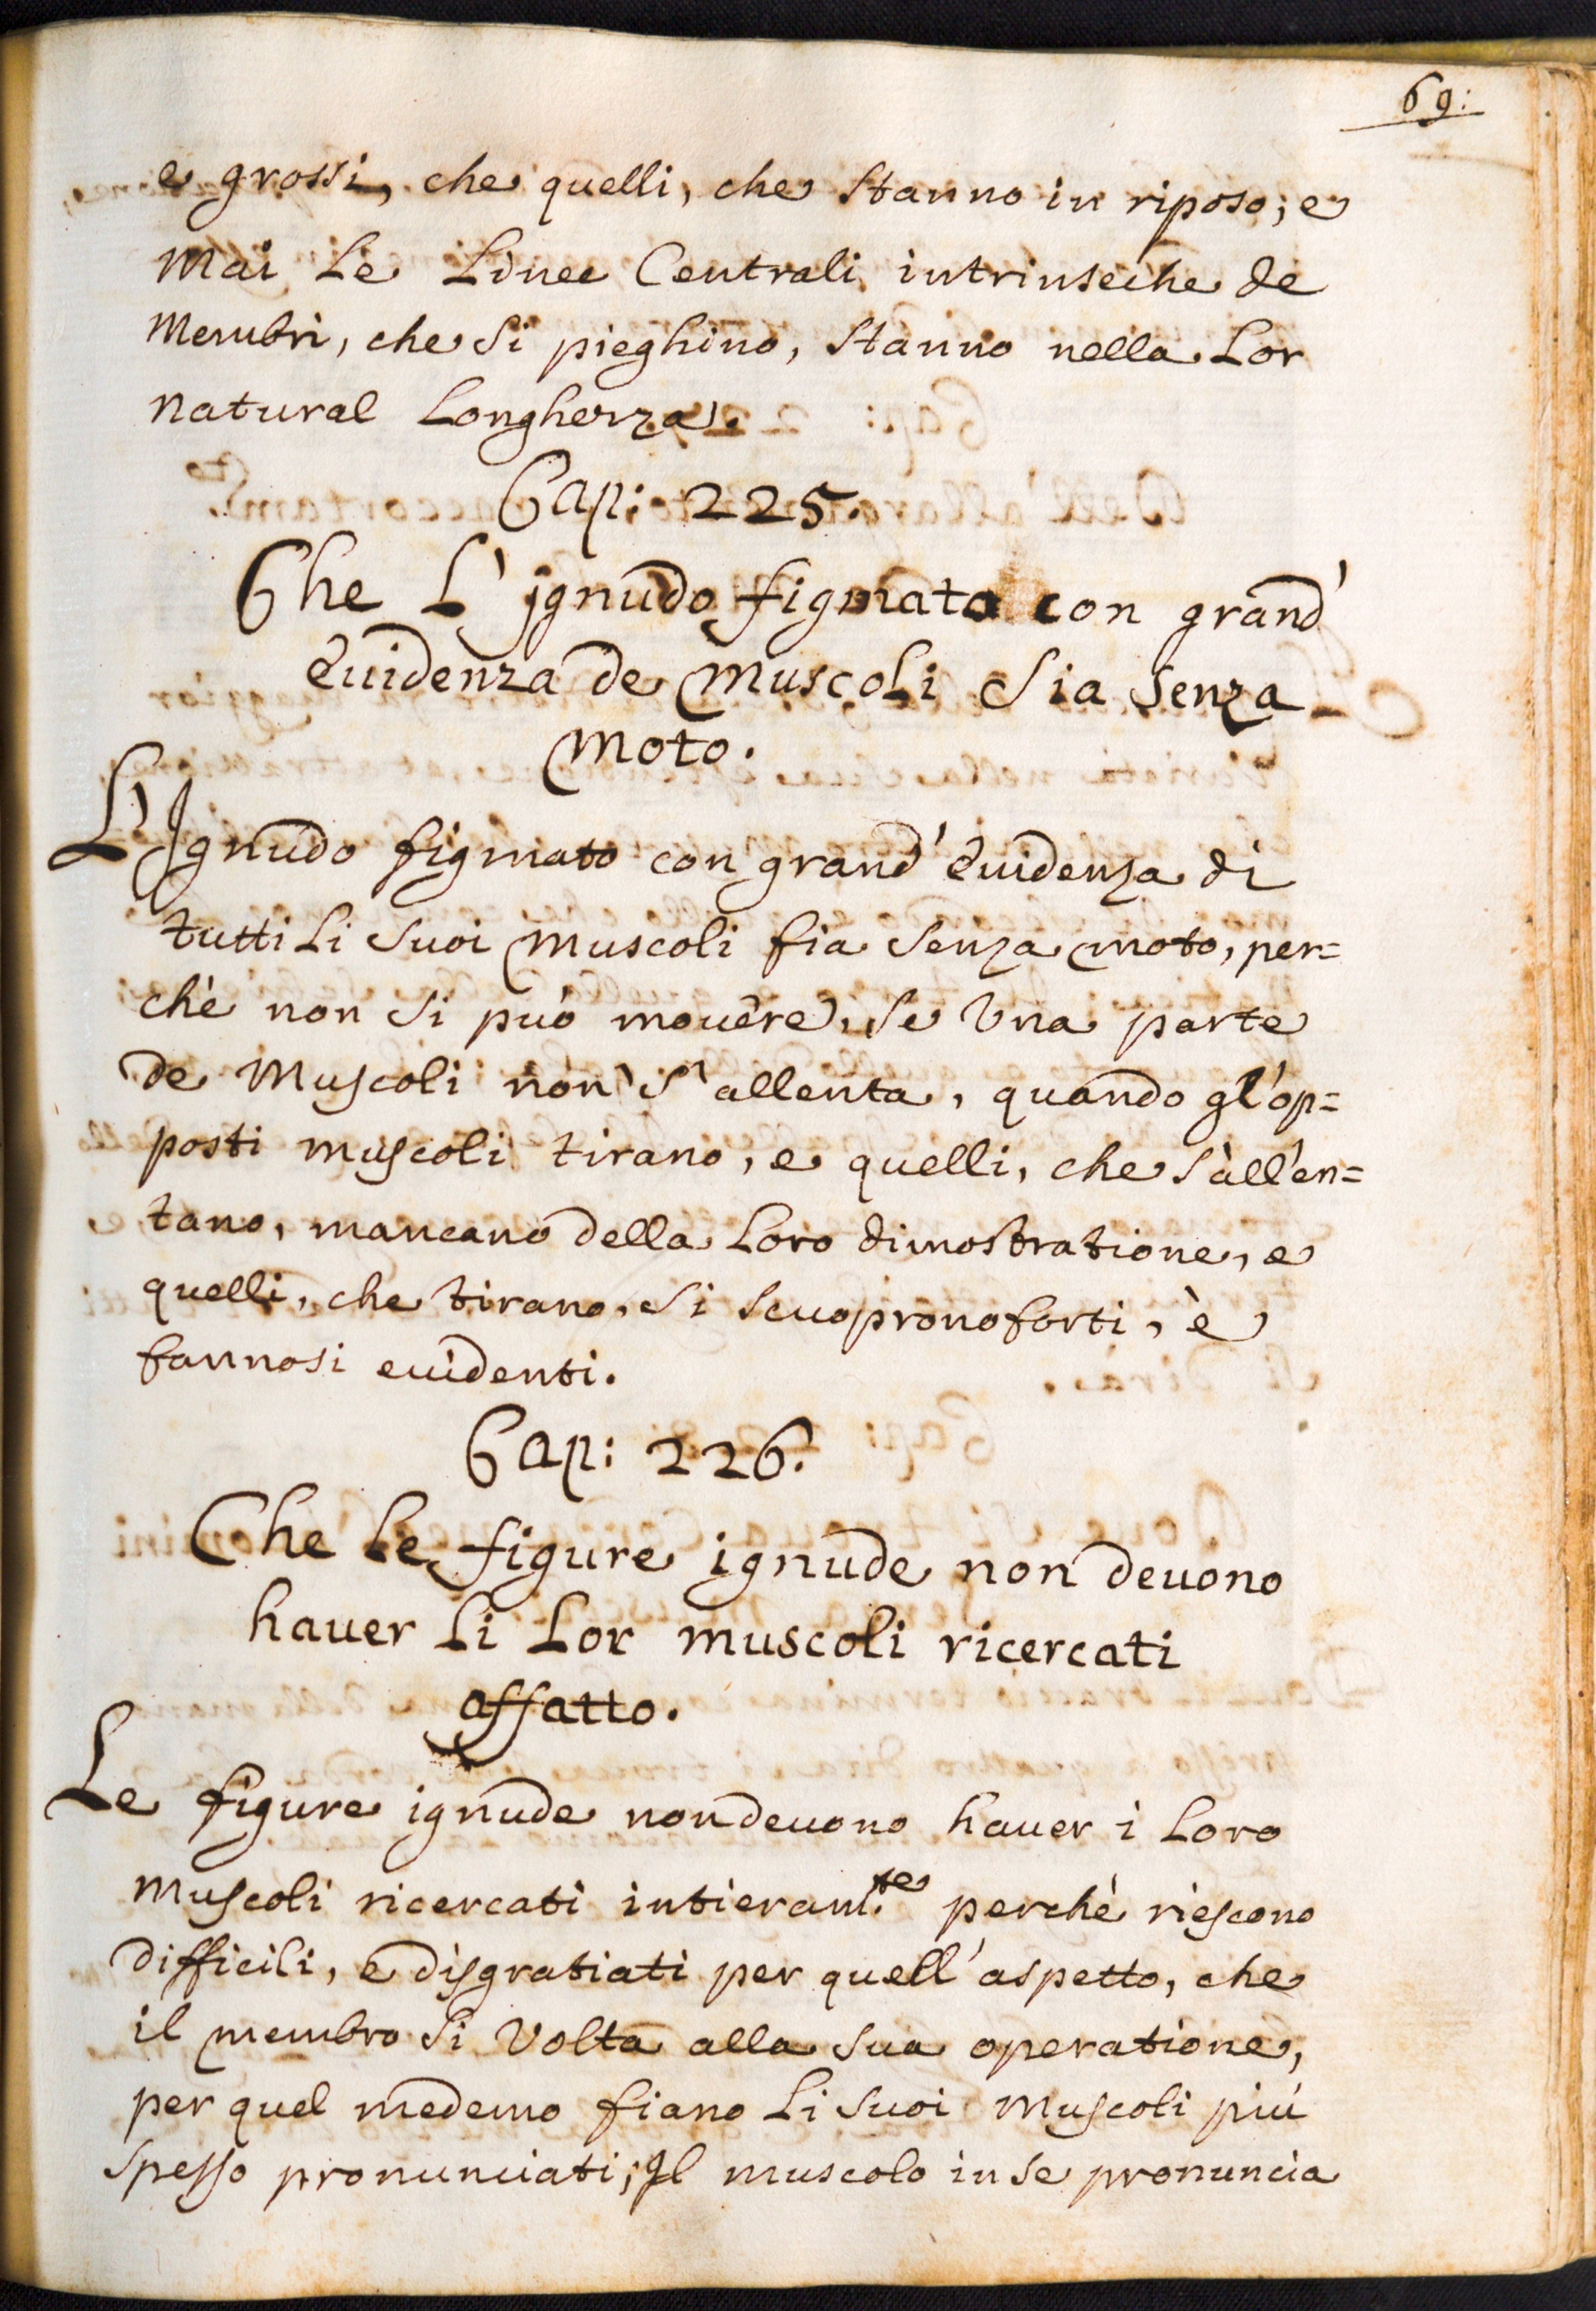 69:
e grossi, che quelli, che stanno in riposo; e
Mai Le Linee Centrali intrinseche de
Membri, che si pieghino, stanno nella Lor
natural Longhezza.
Cap: 225.
Che L' jgnudo figurato con grand'
euidenza de Muscoli Sia senza
Moto.
L' Jgnudo figurato con grand' euidenza di
tutti Li suoi Muscoli fia senza moto, per=
chè non si può mouere, se Vna parte
de Muscoli non s' allenta, quando gl'op=
posti muscoli tirano, e quelli, che s'allen=
tano, mancano della Loro dimostratione, e
quelli, che tirano, si scuoprono forti, è
fannosi euidenti.
Cap: 226.
Che Le figure ignude non deuono
hauer Li Lor muscoli ricercati
affatto.
Le figure ignude non deuono hauer i Loro
Muscoli ricercati intieram.te perchè riescono
difficili, e disgratiati per quell' aspetto, che
il membro si Volta alla sua operatione,
per quel medemo fiano Li suoi Muscoli più
spesso pronunciati; Jl muscolo in se pronuncia